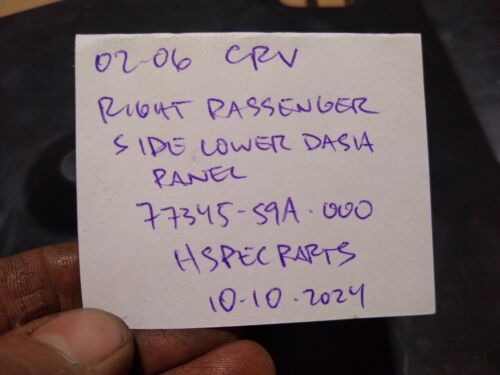 02-06 CRV
RIGHT PASSENGER
SIDE LOWER DASH
PANEL
77345-S9A-000
HSPECPARTS
10-10-2024